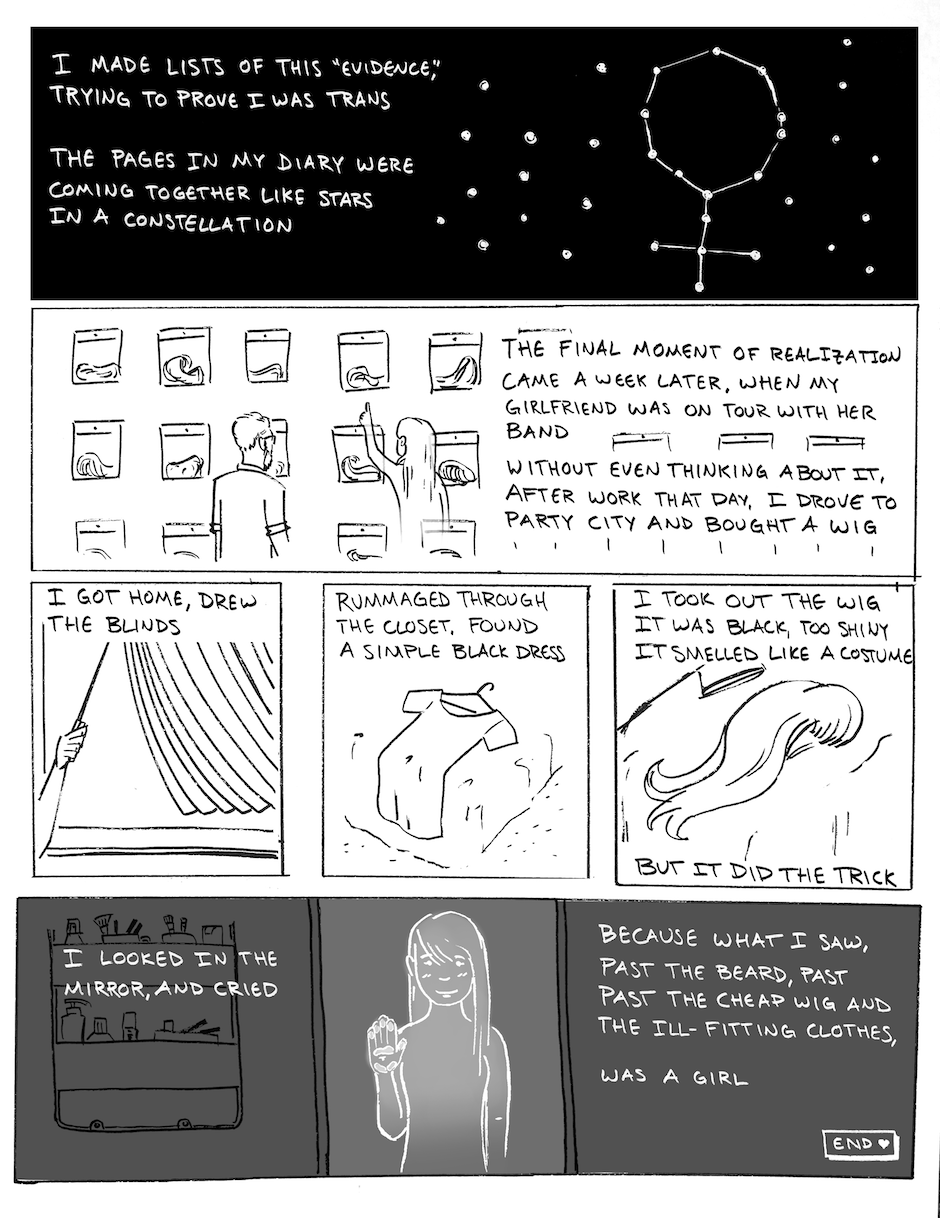 I MADE LISTS OF THIS "EVIDENCE,"
TRYING TO PROVE I WAS TRANS
THE PAGES IN MY DIARY WERE
COMING TOGETHER LIKE STARS
IN A CONSTELLATION
THE FINAL MOMENT OF REALIZATION
CAME A WEEK LATER, WHEN MY
GIRLFRIEND WAS ON TOUR WITH HER
BAND
WITHOUT EVEN THINKING ABOUT IT,
AFTER WORK THAT DAY, I DROVE TO
PARTY CITY AND BOUGHT A WIG
I GOT HOME, DREW
THE BLINDS
RUMMAGED THROUGH
THE CLOSET, FOUND
A SIMPLE BLACK DRESS
I TOOK OUT THE WIG
IT WAS BLACK, TOO SHINY
IT SMELLED LIKE A COSTUME
BUT IT DID THE TRICK
I LOOKED IN THE
MIRROR, AND CRIED
BECAUSE WHAT I SAW,
PAST THE BEARD, PAST
PAST THE CHEAP WIG AND
THE ILL-FITTING CLOTHES,
WAS A GIRL
END ♥